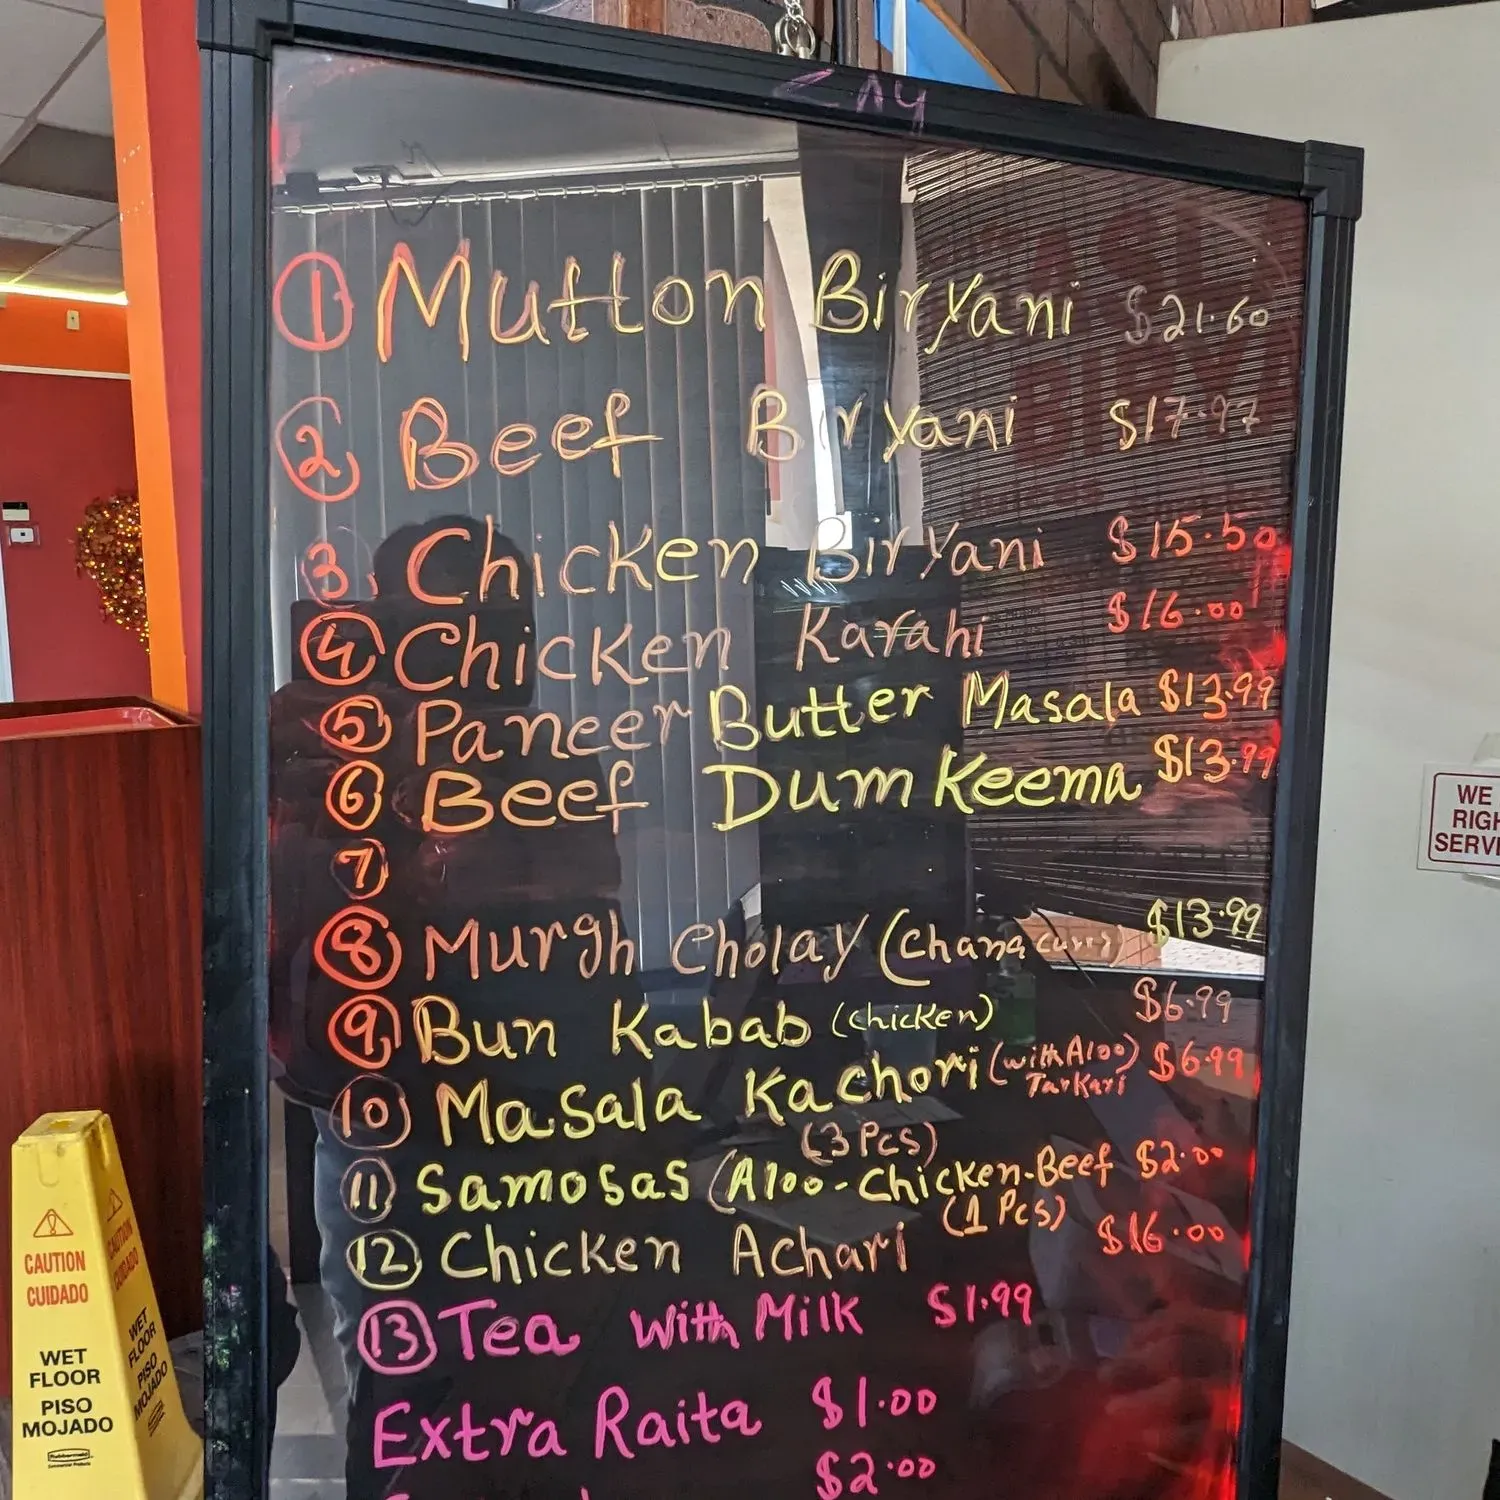 1 Mutton Biryani $21.60
2 Beef Biryani $17.97
3 Chicken Biryani $15.50
4 Chicken Karahi $16.00
5 Paneer Butter Masala $13.99
6 Beef Dum Keema $13.99
7
8 Murgh Cholay (Chana curry) $13.99
9 Bun Kabab (chicken) $6.99
10 Masala Kachori (with Aloo) $6.99
Tarkari
(3 Pcs)
11 Samosas (Aloo-Chicken-Beef $2.00
(1 Pcs)
12 Chicken Achari $16.00
13 Tea With Milk $1.99
Extra Raita $1.00
$2.00
CAUTION
CUIDADO
WET
FLOOR
PISO
MOJADO
CAUTION
CUIDADO
WET
FLOOR
PISO
MOJADO
WE
RIGH
SERV